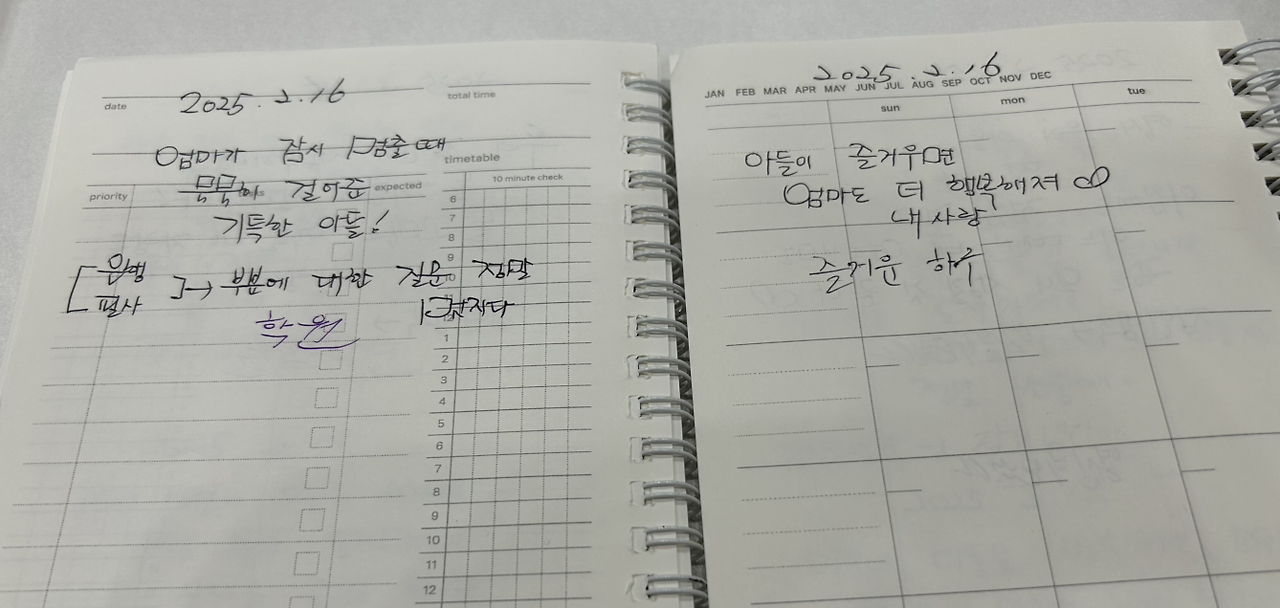 date 2025.2.16 total time
엄마가 잠시 멈출때
timetable
priority 묵묵히 걸어준 expected 10 minute check
기특한 아들!
은행
필사 → 부분에 대한 질문 정말 멋지다
학원
6
7
8
9
10
1
2
3
4
5
6
7
8
9
10
11
12
2025.2.16
JAN FEB MAR APR MAY JUN JUL AUG SEP OCT NOV DEC
sun mon tue
아들이 즐거우면
엄마도 더 행복해져
내 사랑
즐거운 하루